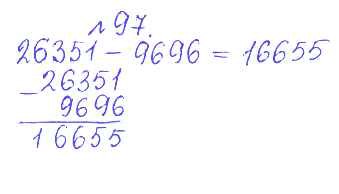 №97.
26351 - 9696 = 16655
- 26351
9696
16655